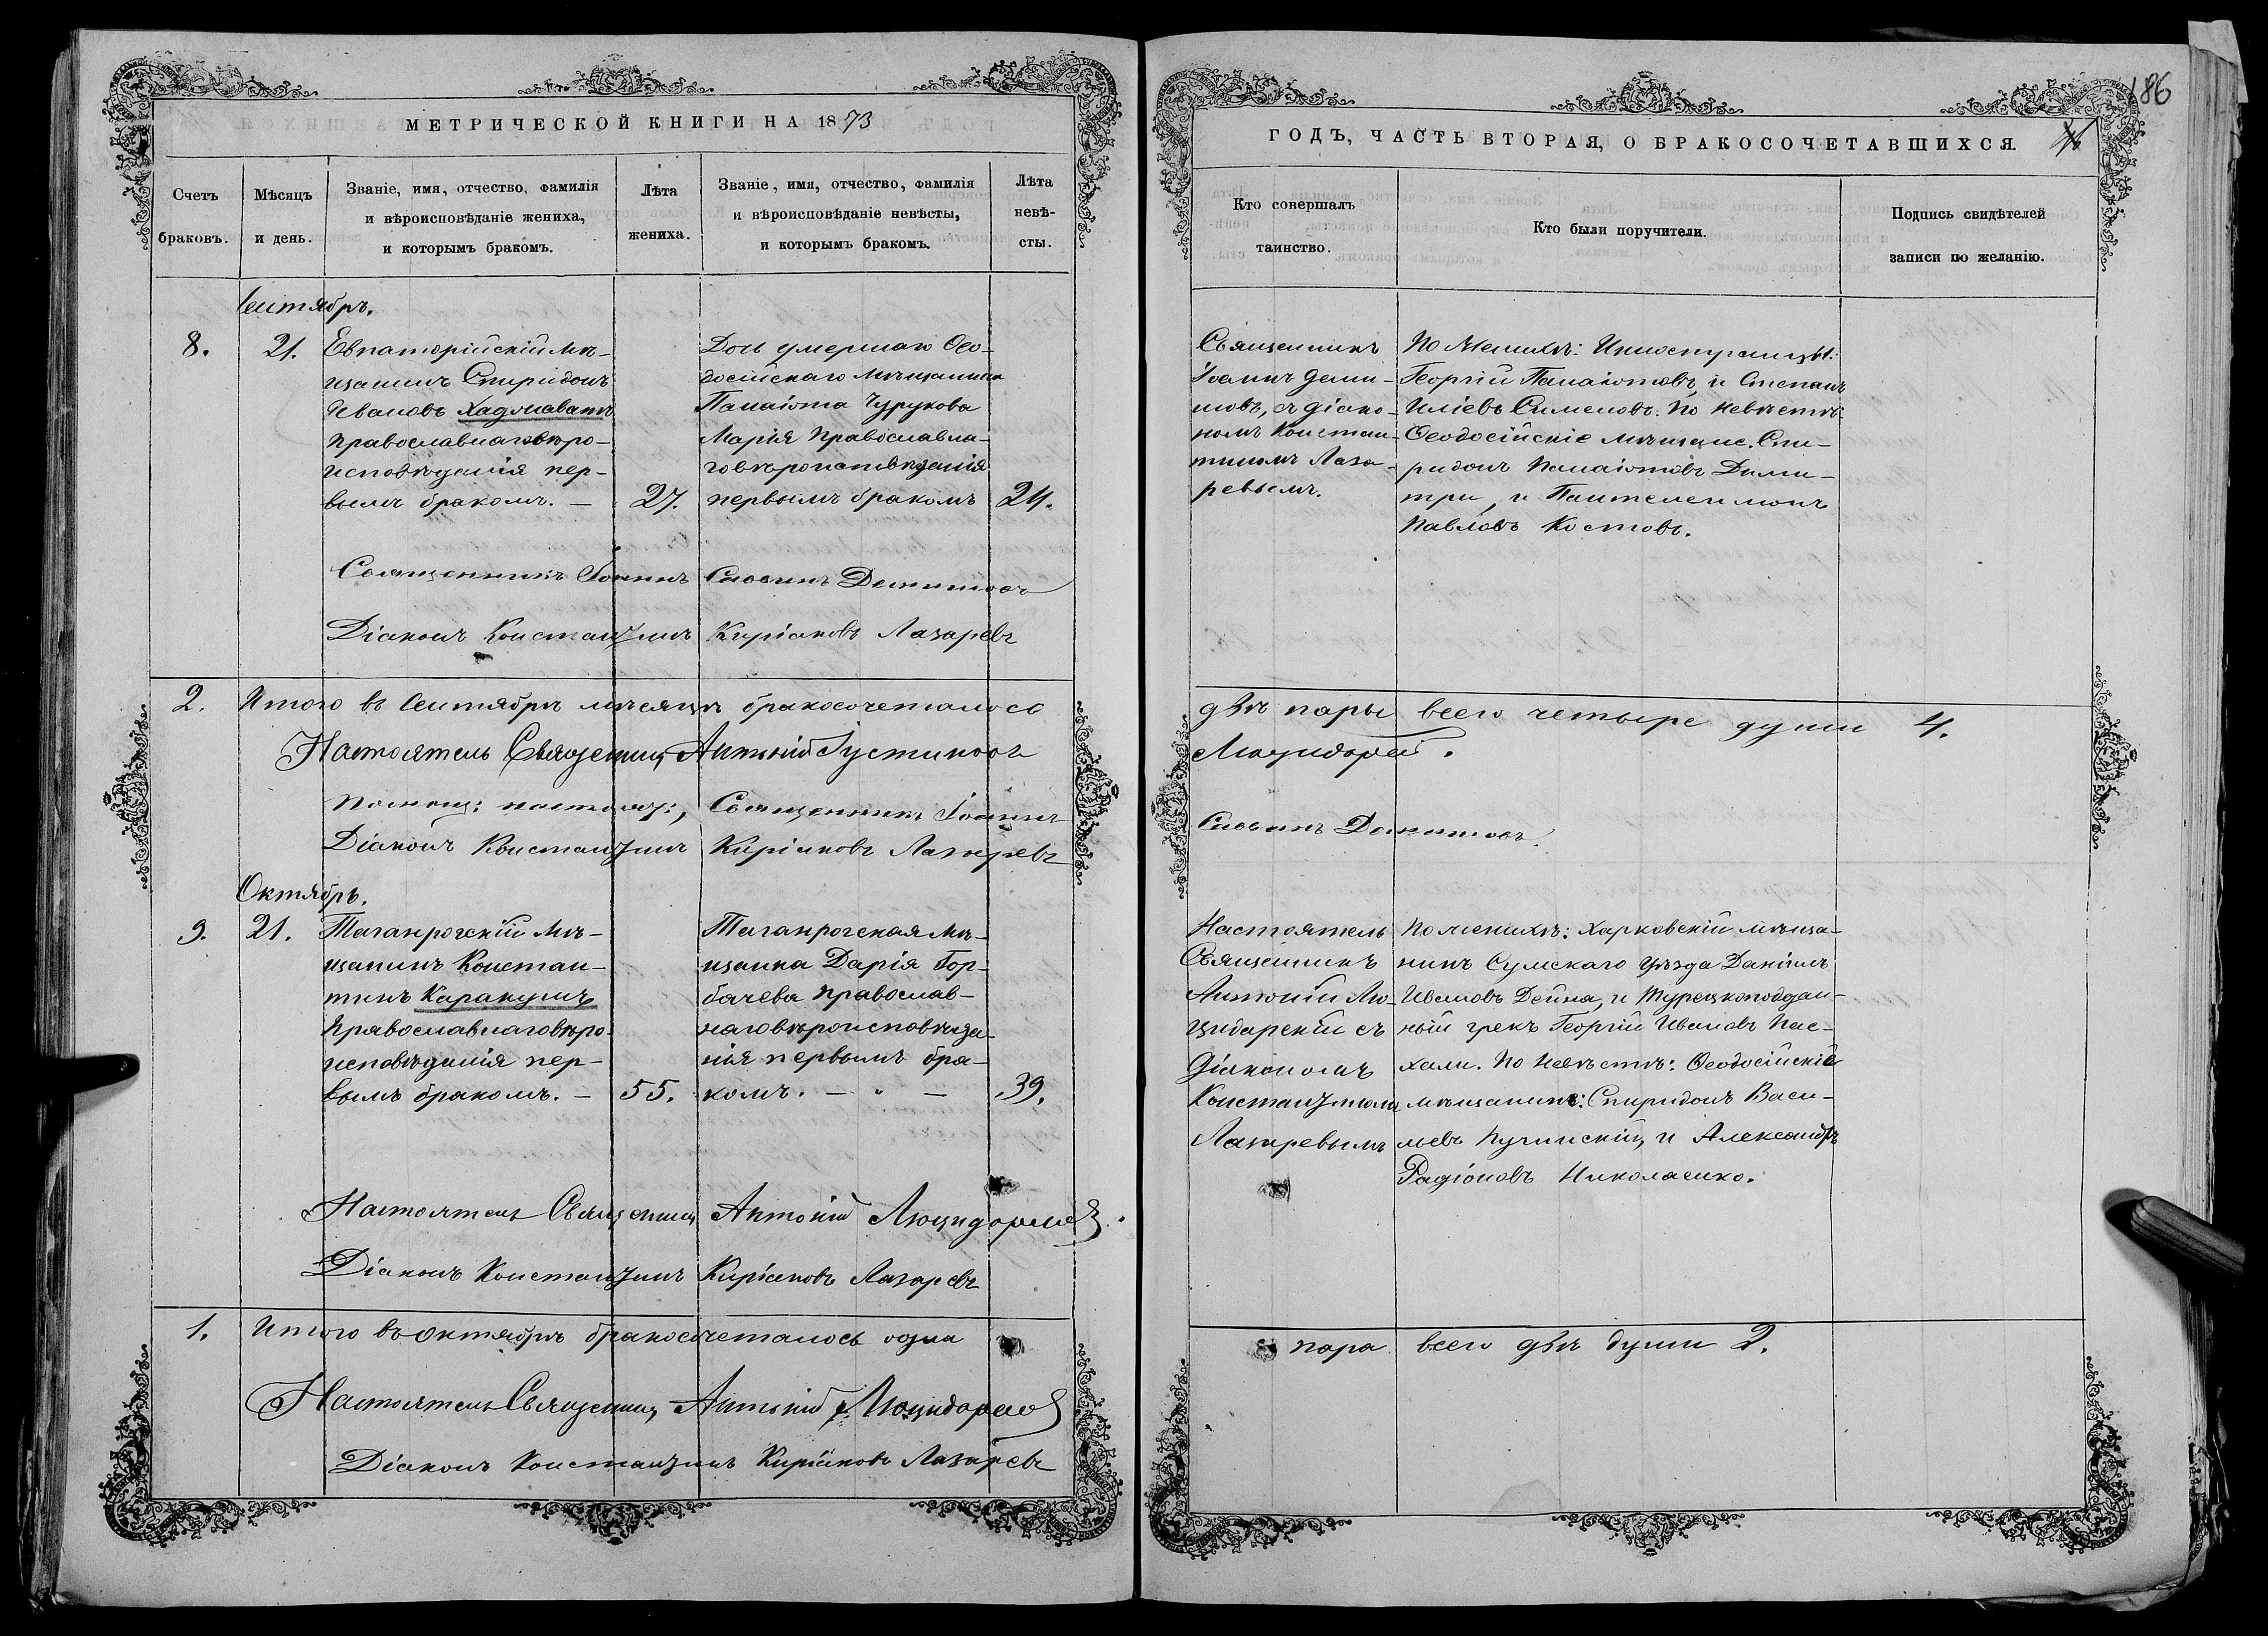 МЕТРИЧЕСКОЙ КНИГИ НА 1873
Счетъ браковъ.
Мѣсяцъ и день.
Званіе, имя, отчество, фамилія
и вѣроисповѣданіе жениха,
и которымъ бракомъ.
Лѣта жениха.
Званіе, имя, отчество, фамилія
и вѣроисповѣданіе невѣсты,
и которымъ бракомъ.
Лѣта невѣ-
сты.
Сентябрь.
8.
21.
Евпаторійскій мѣ-
щанинъ Спиридонъ
Ивановъ
православнаго вѣро-
исповѣданія пер-
вымъ бракомъ. —
27.
Дочь умершаго Ѳео-
досійскаго мѣщанина
Панаіота Чурукова
Марія православна-
го вѣроисповѣданія
первымъ бракомъ
24.
Священникъ Іоаннъ Демишовъ
Діаконъ Константинъ Киріаковъ Лазаревъ
2.
Итого въ Сентябрѣ мѣсяцѣ бракосочеталось
Настоятель Священник Антоній Іустиновъ
Помощ: настоят:, Священникъ Іоаннъ
Діаконъ Константинъ Киріаковъ Лазаревъ
Октябрь.
9.
21.
Таганрогскій мѣ-
щанинъ Констан-
тинъ Каракушъ
православнаго вѣро-
исповѣданія пер-
вымъ бракомъ. —
55.
Таганрогская мѣ-
щанка Дарія Гор-
бачева православ-
наго вѣроисповѣда-
нія первымъ бра-
комъ. — " —
39.
Настоятель Священник Антоній
Діаконъ Константинъ Киріаковъ Лазаревъ
1.
Итого въ Октябрѣ бракосочеталось одна
Настоятель Священник Антоній
Діаконъ Константинъ Киріаковъ Лазаревъ
186
ГОДЪ, ЧАСТЬ ВТОРАЯ, О БРАКОСОЧЕТАВШИХСЯ.
Кто совершалъ
таинство.
Кто были поручители.
Подпись свидѣтелей
записи по желанію.
Священникъ
Іоаннъ
съ діако-
номъ Констан-
тиномъ Лаза-
ревымъ.
По женихѣ: Иностранцы:
Георгій Панаіотовъ, и Степанъ
Иліевъ Сименовъ. По невѣстѣ:
Ѳеодосійскіе мѣщане. Спи-
ридонъ Панаіотовъ Дими-
три, и Пантелеимонъ
Павловъ Костовъ.
двѣ пары всего четыре души 4.
Настоятель
Священникъ
Антоній
съ
Діакономъ
Константиномъ
Лазаревымъ
По женихѣ: Харковскій мѣща-
нинъ Сумскаго уѣзда Даніилъ
Ивановъ Дейна, и Турецкоподдан-
ный грекъ Георгій Ивановъ Пас-
хали. По невѣстѣ: Ѳеодосійскіе
мѣщанине: Спиридонъ Васи-
льевъ Пучинскій, и Александръ
Радіоновъ Николаенко.
пара всего двѣ души 2.